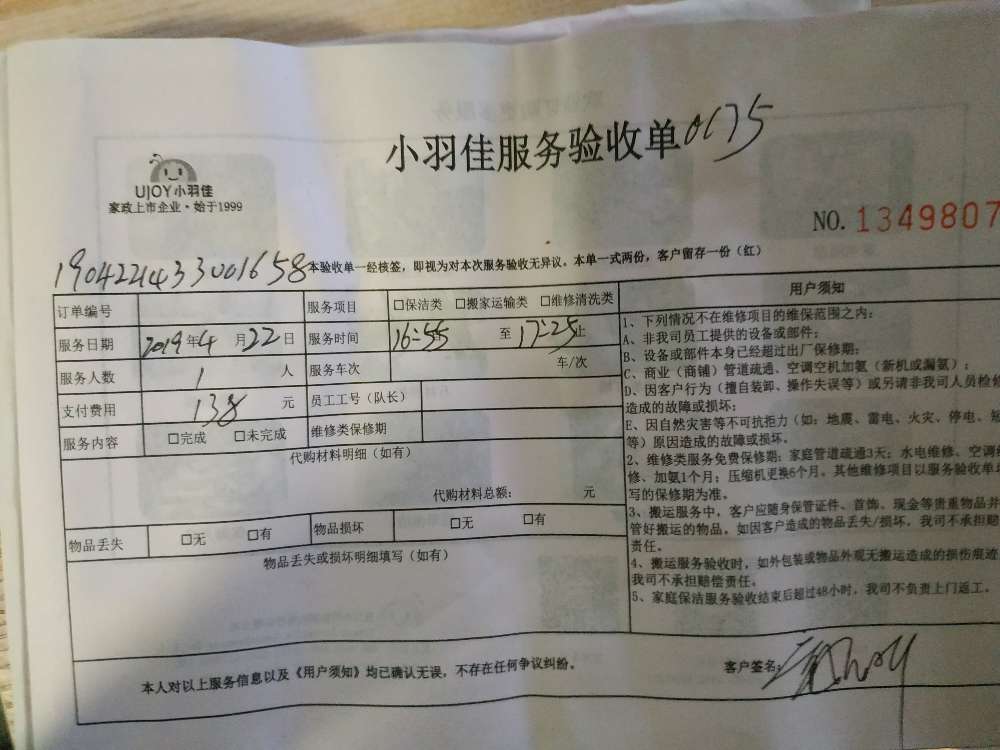 小羽佳服务验收单0175
UJOY小羽佳
家政上市企业·始于1999
NO. 1349807
190422433001658
本验收单一经核签，即视为对本次服务验收无异议。本单一式两份，客户留存一份（红）
订单编号 服务项目 □保洁类 □搬家运输类 □维修清洗类
服务日期 2019年4月22日 服务时间 16:55 至 17:25止
服务人数 1 人 服务车次 车/次
支付费用 138 元 员工工号（队长）
服务内容 □完成 □未完成 维修类保修期
代购材料明细（如有）
代购材料总额： 元
物品丢失 □无 □有 物品损坏 □无 □有
物品丢失或损坏明细填写（如有）
用户须知
1、下列情况不在维修项目的维保范围之内：
A、非我司员工提供的设备或部件；
B、设备或部件本身已经超过出厂保修期；
C、商业（商铺）管道疏通、空调空机加氨（新机或漏氨）；
D、因客户行为（擅自装卸、操作失误等）或另请非我司人员检修
造成的故障或损坏；
E、因自然灾害等不可抗拒力（如：地震、雷电、火灾、停电、短
等）原因造成的故障或损坏。
2、维修类服务免费保修期：家庭管道疏通3天；水电维修、空调维
修、加氨1个月；压缩机更换6个月。其他维修项目以服务验收单填
写的保修期为准。
3、搬运服务中，客户应随身保管证件、首饰、现金等贵重物品并
管好搬运的物品。如因客户造成的物品丢失/损坏，我司不承担赔
责任。
4、搬运服务验收时，如外包装或物品外观无搬运造成的损伤痕迹
我司不承担赔偿责任。
5、家庭保洁服务验收结束后超过48小时，我司不负责上门返工。
本人对以上服务信息以及《用户须知》均已确认无误，不存在任何争议纠纷。 客户签名：